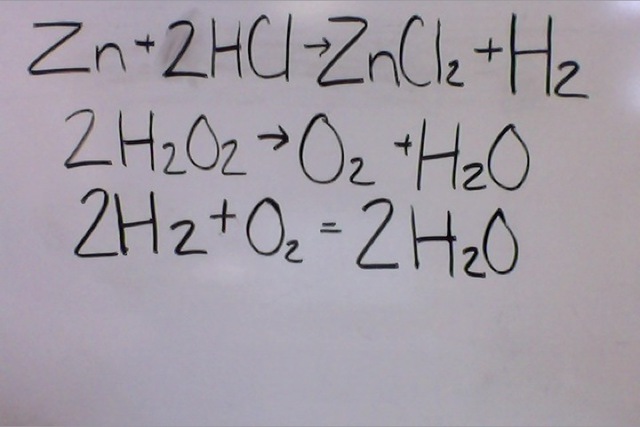 Zn+2HCl→ZnCl₂+H₂
2H₂O₂→O₂+H₂O
2H₂+O₂=2H₂O